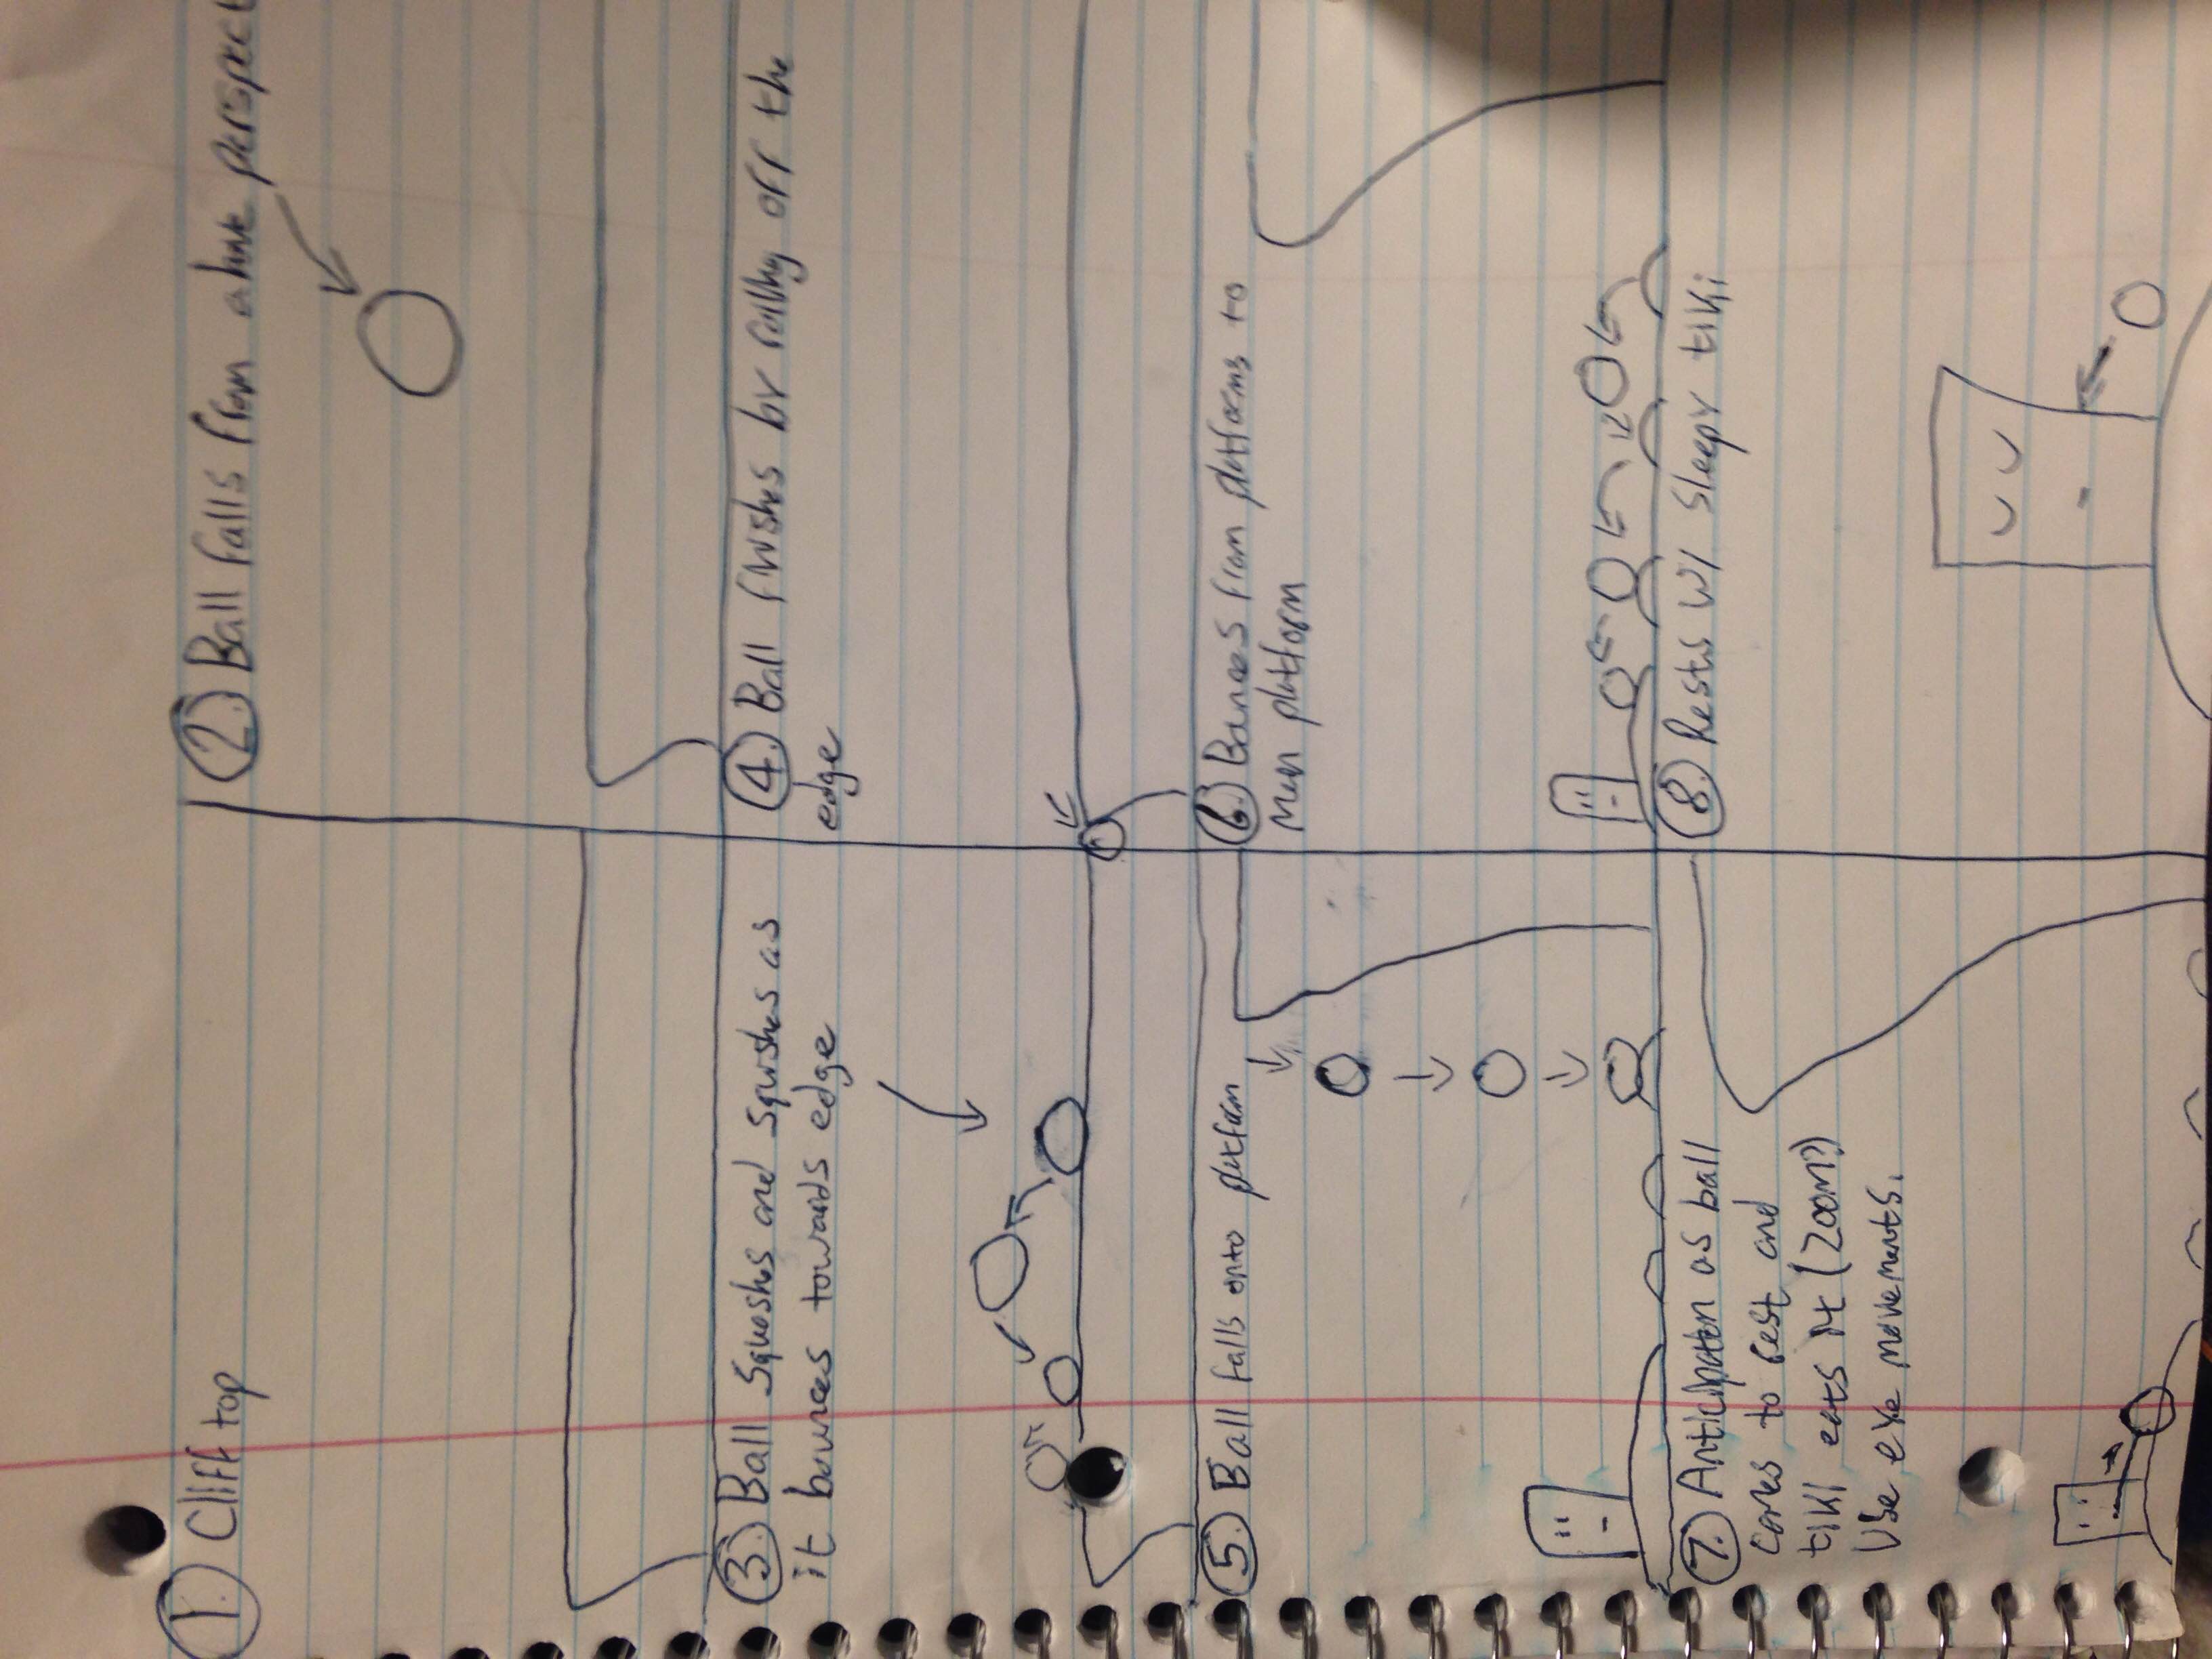 1. Cliff top
2. Ball falls from above perspect
3. Ball squashes and squishes as
it bounces towards edge
4. Ball finishes by rolling off the
edge
5. Ball falls onto platform
6. Bounces from platforms to
main platform
7. Anticipation as ball
comes to rest and
tiki eats it (zoom?)
Use eye movements.
8. Rests w/ sleepy tiki